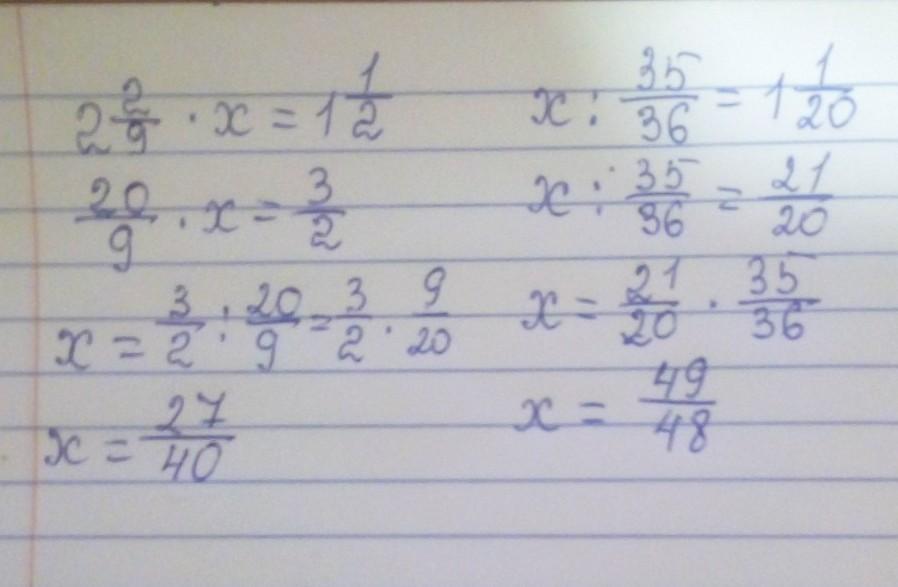 2 2/9 · x = 1 1/2
20/9 · x = 3/2
x = 3/2 : 20/9 = 3/2 · 9/20
x = 27/40
x : 35/36 = 1 1/20
x : 35/36 = 21/20
x = 21/20 · 35/36
x = 49/48